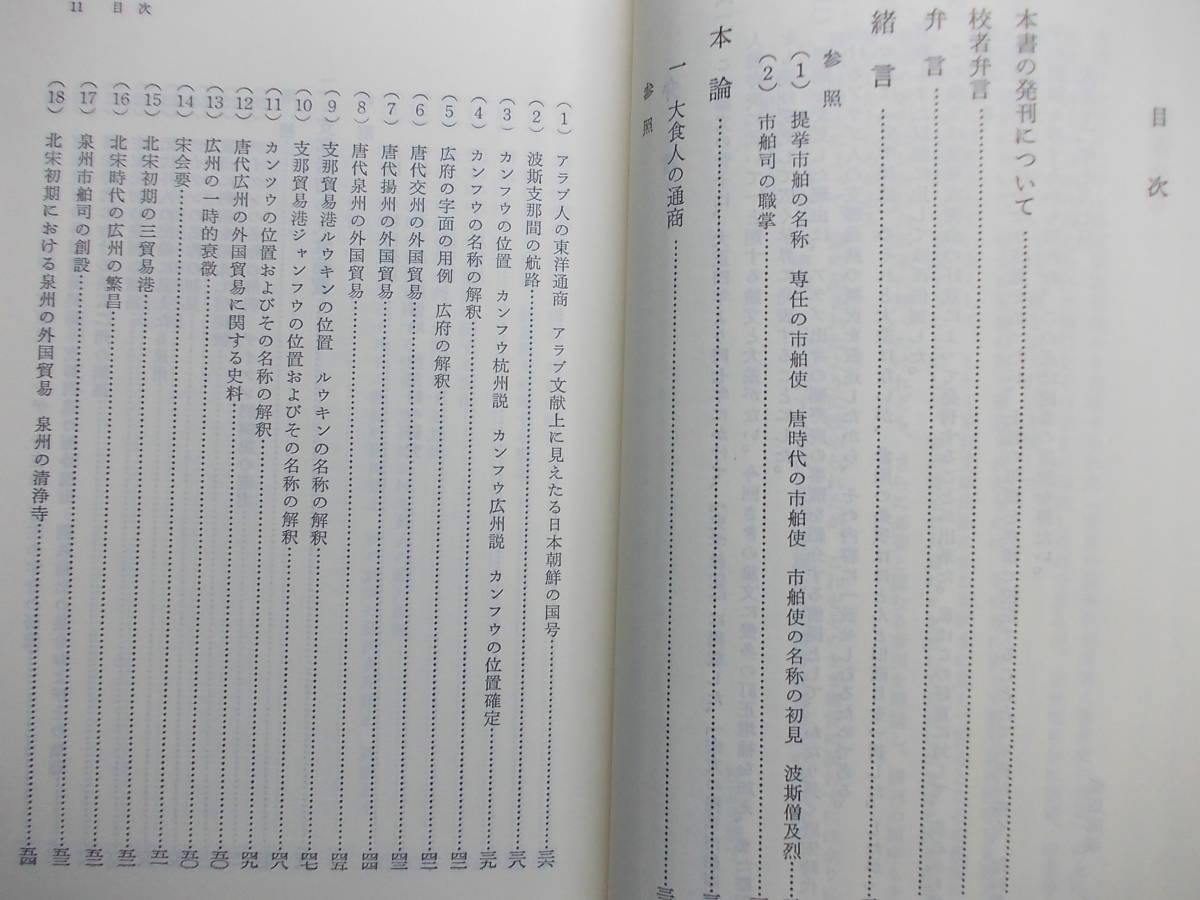 目次
本書の発刊について……
校者弁言……
弁言……
緒言……
参照
(1) 提挙市舶の名称 専任の市舶使 唐時代の市舶使 市舶使の名称の初見 波斯僧及烈……
(2) 市舶司の職掌……
本論……
一 大食人の通商……
参照
11 目次
(1) アラブ人の東洋通商 アラブ文献上に見えたる日本朝鮮の国号……三六
(2) 波斯支那間の航路……三八
(3) カンフウの位置 カンフウ杭州説 カンフウ広州説 カンフウの位置確定……三九
(4) カンフウの名称の解釈……四二
(5) 広府の字面の用例 広府の解釈……四二
(6) 唐代交州の外国貿易……四三
(7) 唐代揚州の外国貿易……四四
(8) 唐代泉州の外国貿易……四五
(9) 支那貿易港ルウキンの位置 ルウキンの名称の解釈……四七
(10) 支那貿易港ジャンフウの位置およびその名称の解釈……四八
(11) カンツウの位置およびその名称の解釈……四九
(12) 唐代広州の外国貿易に関する史料……五〇
(13) 広州の一時的衰微……五〇
(14) 宋会要……五一
(15) 北宋初期の三貿易港……五二
(16) 北宋時代の広州の繁昌……五二
(17) 泉州市舶司の創設……五三
(18) 北宋初期における泉州の外国貿易 泉州の清浄寺……五四